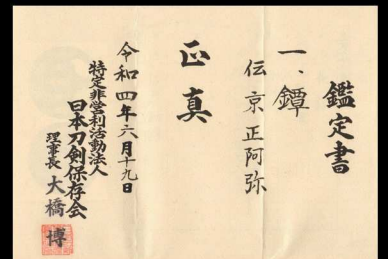 鑑定書
一、鐔
伝京正阿弥
正真
令和四年六月十九日
特定非営利活動法人
日本刀剣保存会
理事長 大橋博